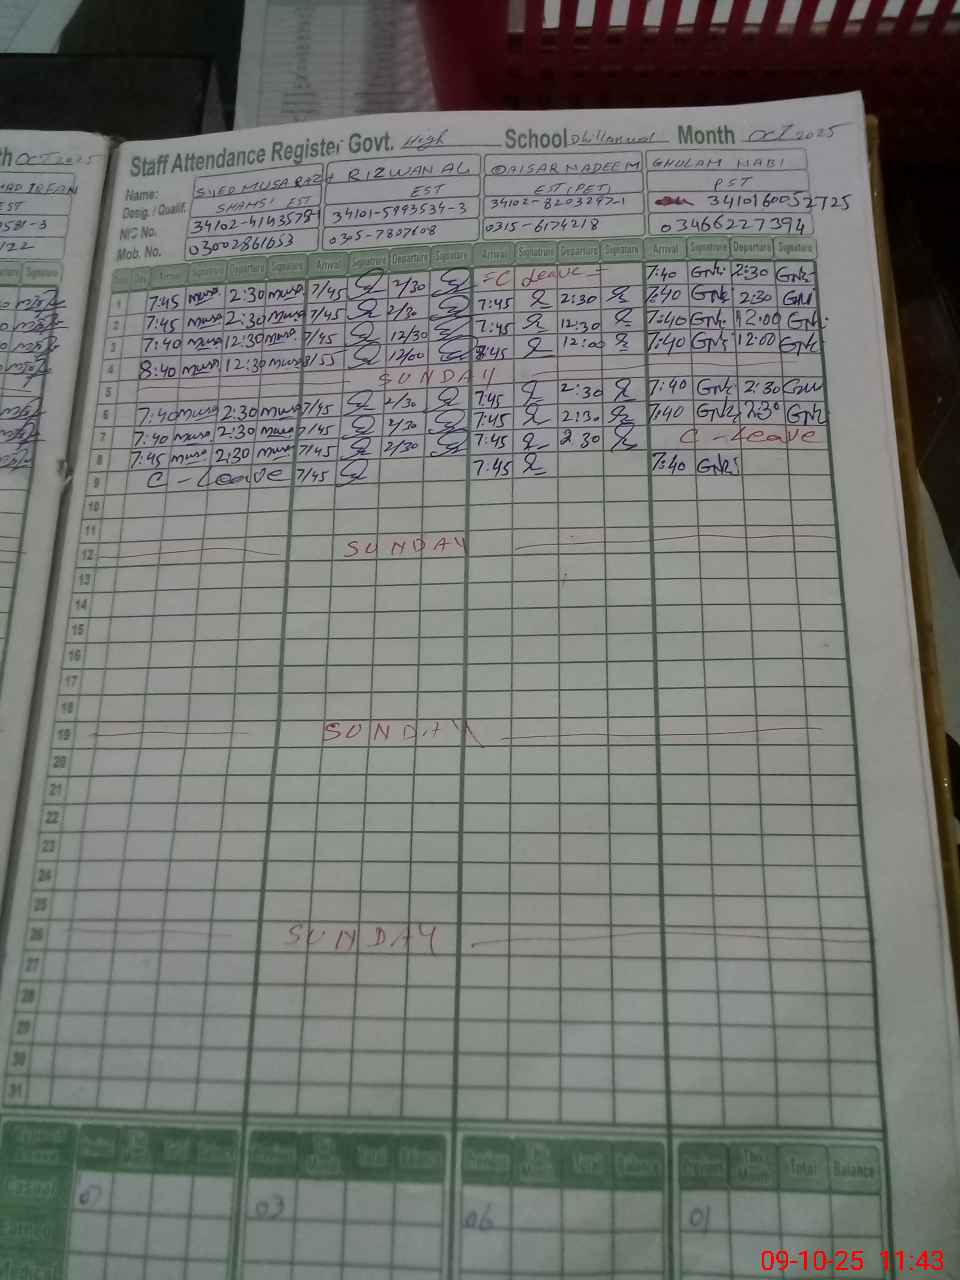 th OCT 2025
Staff Attendance Register Govt. High School Dhillanwal Month OCT 2025
Name: SYED MUSA RAZA RIZWAN ALI QAISAR NADEEM GHULAM NABI
Desig. / Qualif. SHAMSI EST EST EST (PET) PST
NIC No. 34101-5993534-3 3410160052725
Mob. No. 03002861653 0305-7807608 0315-6174218 03466227394
Day Arrival Signature Departure Signature Arrival Signature Departure Signature Arrival Signature Departure Signature Arrival Signature Departure Signature
1 7:45 musa 2:30 musa 7/45 2/30 C Leave 7:40 GNK 2:30 GNK
2 7:45 musa 2:30 musa 7/45 2/30 7:45 2:30 7:40 GNK 2:30 GNK
3 7:40 musa 12:30 musa 7/45 12/30 7:45 12:30 7:40 GNK 12:00 GNK
4 8:40 musa 12:30 musa 8/55 12/00 8:45 12:00 7:40 GNK 12:00 GNK
5 SUNDAY
6 7:40 musa 2:30 musa 7/45 2/30 7:45 2:30 7:40 GNK 2:30 GNK
7 7:40 musa 2:30 musa 7/45 2/30 7:45 2:30 7:40 GNK 2:30 GNK
8 7:45 musa 2:30 musa 7/45 2/30 7:45 2:30 C-Leave
9 C-Leave 7/45 7:45 7:40 GNK
10
11
12 SUNDAY
13
14
15
16
17
18
19 SUNDAY
20
21
22
23
24
25
26 SUNDAY
27
28
29
30
31
Previous This Month Total Balance
03 06 01
09-10-25 11:43